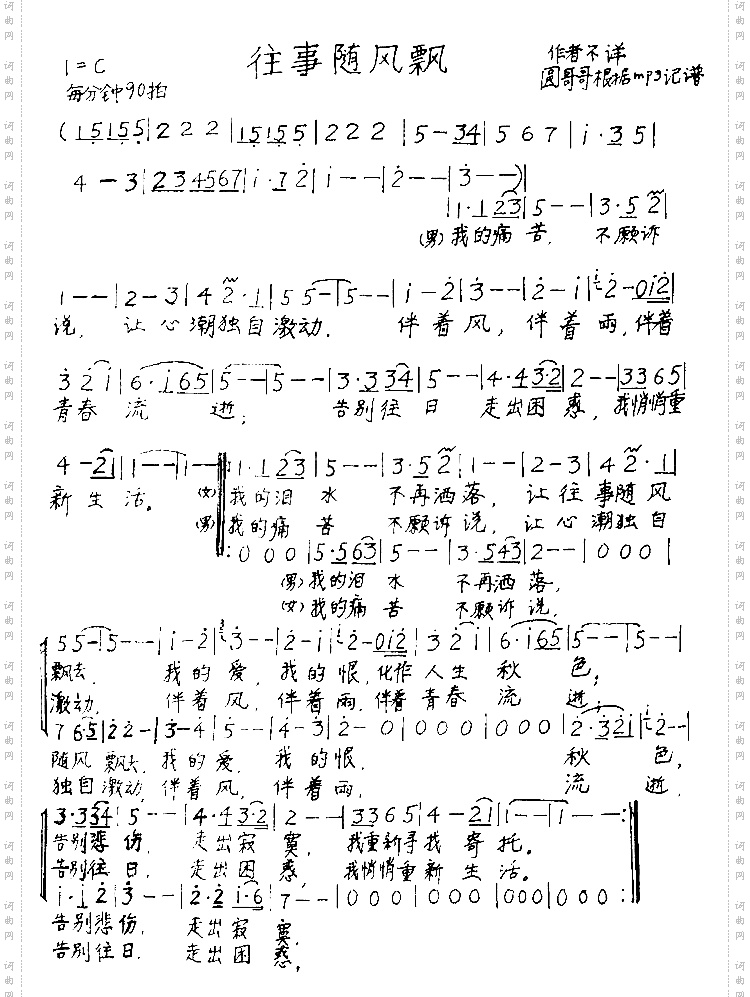 往事随风飘
作者不详
1=C
圆哥哥根据mp3记谱
每分钟90拍
(15155|222|15155|222|5-34|567|i·35|
4-3|234567|i·72|i--|2--|3--)|
|1·123|5--|3·52|
(男)我的痛苦. 不愿诉
1--|2-3|42·1|55-|5--|i-2|3--|2-i|2-0i2|
说, 让心潮独自激动. 伴着风, 伴着雨, 伴着
32i|6·i65|5--|5--|3·334|5--|4·432|2--|3365|
青春流逝; 告别往日 走出困惑, 我悄悄重
4-21|1--|1--‖1·123|5--|3·52|1--|2-3|42·1|
新生活。 (女)我的泪水 不再洒落, 让往事随风
(男)我的痛苦 不愿诉说, 让心潮独自
:000|5·563|5--|3·543|2--|000|
(男)我的泪水 不再洒落,
(女)我的痛苦 不愿诉说,
55-|5--|i-2|3--|2-i|2-0i2|32i|6·i65|5--|5--|
飘去. 我的爱, 我的恨, 化作人生秋色;
激动. 伴着风, 伴着雨, 伴着青春流逝;
765|22-|3-4|5--|4-3|2-0|000|000|2·32i|2--|
随风飘去, 我的爱, 我的恨, 秋色,
独自激动, 伴着风, 伴着雨, 流逝,
3·334|5--|4·432|2--|3365|4-21|1--|1--:‖
告别悲伤, 走出寂寞, 我重新寻找寄托。
告别往日, 走出困惑, 我悄悄重新生活。
i·i2|3--|2·2i·6|7--|000|000|000|000:‖
告别悲伤, 走出寂寞,
告别往日, 走出困惑,
词曲网